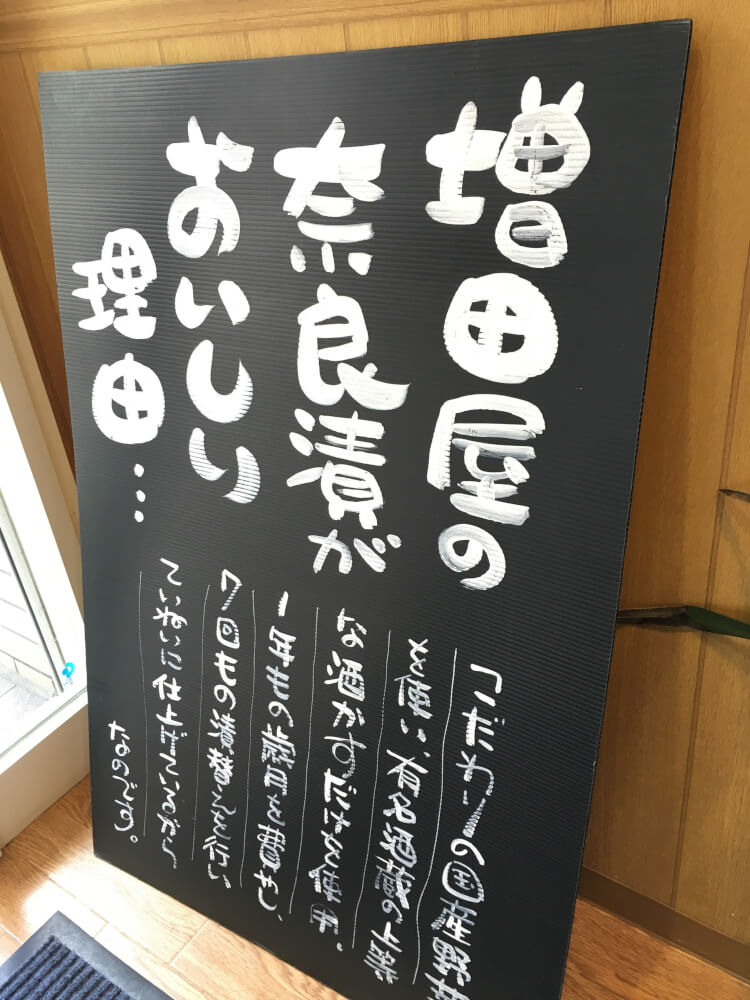 増田屋の
奈良漬が
おいしい
理由…
こだわりの国産野菜
を使い、有名酒蔵の上質
な酒かすだけを使用。
1年もの歳月を費やし、
7回もの漬替えを行い
ていねいに仕上げているから
なのです。